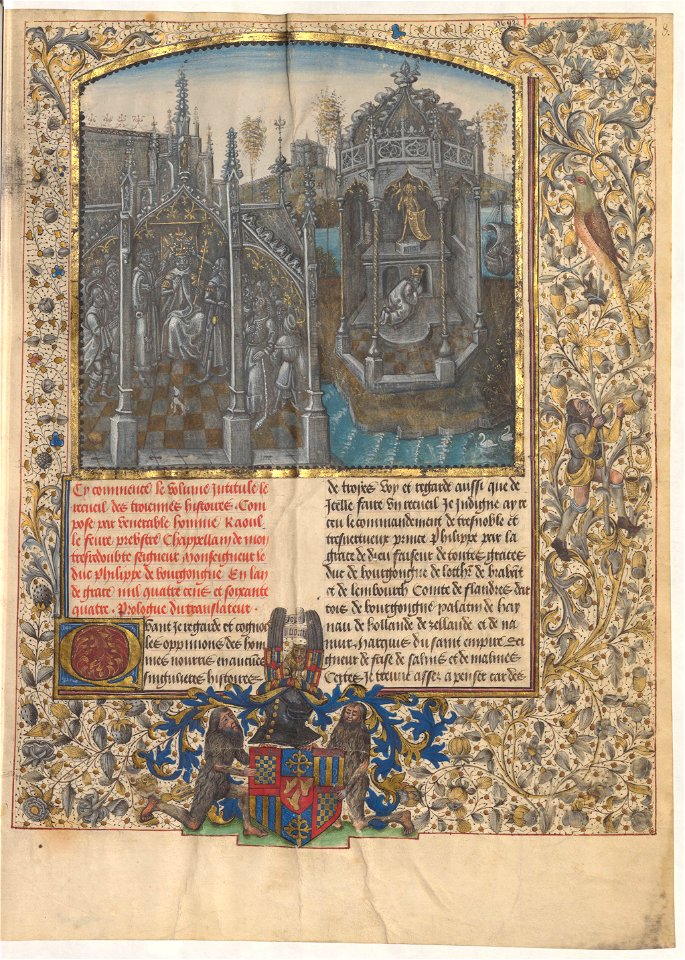 Cy commence le volume Intitule le
recueil des troiennes histoires . Com
pose par venerable homme Raoul
le feure prebstre Chappellain de mon
tresredoubte seigneur Monseigneur le
duc Philippe de bourgoingne En lan
de grace mil quatre cens et soixante
quatre . Prologue du translateur .
Quant Je regarde et cognois
les oppinions des hom
mes nourris en aucunes
singulieres histoires
de troyes voy et regarde aussi que de
Jcelle faire vn recueil Je Indigne ay re
ceu le commandement de tresnoble et
tresvertueux prince Philippe par la
grace de dieu faiseur de toutes graces
duc de bourgoingne de lothr de brabāt
et de lembourch Conte de flandres dar
tois de bourgoingne palatin de hay
nau de hollande de zellande et de na
mur Marquis du saint empire Sei
gneur de frise de salins et de malines
Certes Je treuue assez a penser car des
8.